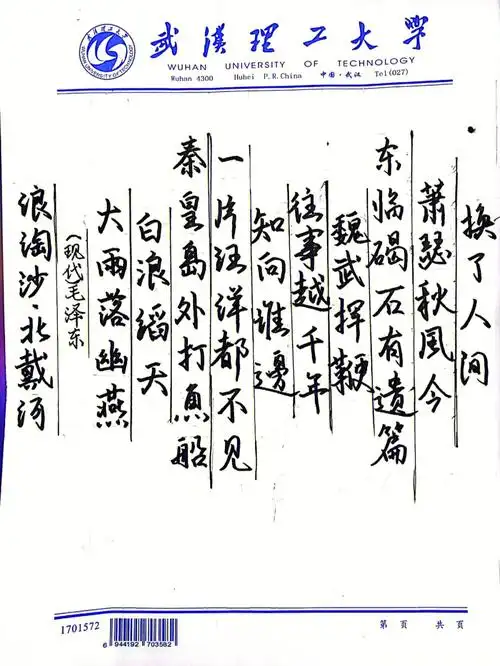 武漢理工大學
WUHAN UNIVERSITY OF TECHNOLOGY
WUHAN UNIVERSITY OF TECHNOLOGY
Wuhan 4300 Hubei P.R.China 中国·武汉 Tel(027)
浪淘沙·北戴河
(现代毛泽东
大雨落幽燕
白浪滔天
秦皇岛外打魚船
一片汪洋都不见
知向谁邊
往事越千年
魏武挥鞭
东临碣石有遗篇
萧瑟秋风今
换了人间
1701572
6 944192 703582
第 页 共 页